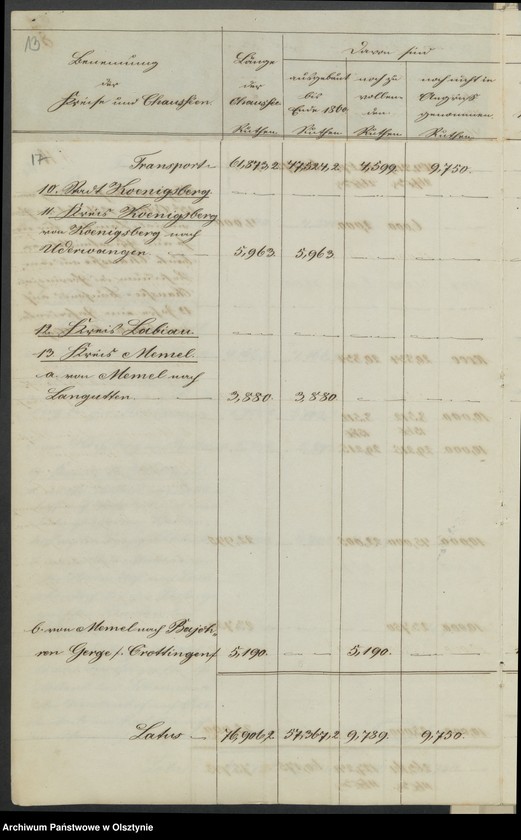 13
Benennung
der
Kreise und Chausseen.
Länge
der
Chaussee
Ruthen
Davon sind
ausgebaut
bis
Ende 1860
Ruthen
noch zu
vollen-
den
Ruthen
noch nicht in
Angriff
genommen
Ruthen
17
Transport 61,873,2 47,524,2 4,599. 9,750.
10. Stadt Koenigsberg. — — — —
11. Kreis Koenigsberg
von Koenigsberg nach
Uderwangen 5,963. 5,963. — —
12. Kreis Labiau. — — — —
13. Kreis Memel.
a. von Memel nach
Langutten. — 3,880. 3,880. — —
b. von Memel nach Bajoh-
ren Gerge /: Crottingen :/ 5,190. — 5,190. —
Latus — 76,906,2 57,367,2 9,789. 9,750.
Archiwum Państwowe w Olsztynie